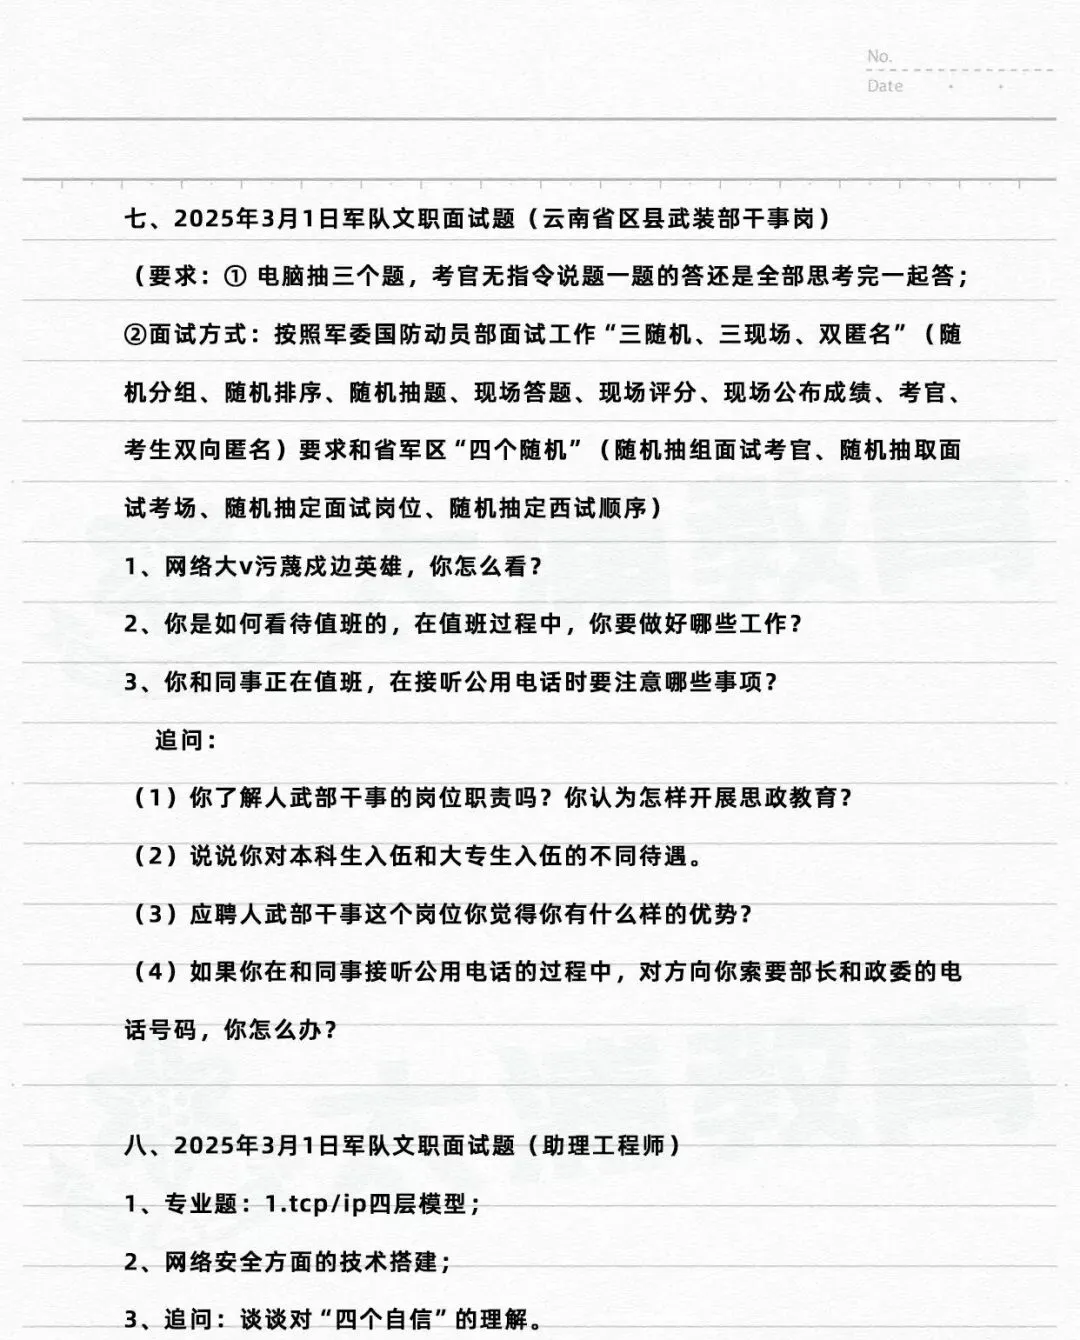 No.
Date
七、2025年3月1日军队文职面试题（云南省区县武装部干事岗）
（要求：① 电脑抽三个题，考官无指令说题一题的答还是全部思考完一起答；
②面试方式：按照军委国防动员部面试工作“三随机、三现场、双匿名”（随
机分组、随机排序、随机抽题、现场答题、现场评分、现场公布成绩、考官、
考生双向匿名）要求和省军区“四个随机”（随机抽组面试考官、随机抽取面
试考场、随机抽定面试岗位、随机抽定西试顺序）
1、网络大v污蔑戍边英雄，你怎么看？
2、你是如何看待值班的，在值班过程中，你要做好哪些工作？
3、你和同事正在值班，在接听公用电话时要注意哪些事项？
追问：
（1）你了解人武部干事的岗位职责吗？你认为怎样开展思政教育？
（2）说说你对本科生入伍和大专生入伍的不同待遇。
（3）应聘人武部干事这个岗位你觉得你有什么样的优势？
（4）如果你在和同事接听公用电话的过程中，对方向你索要部长和政委的电
话号码，你怎么办？
八、2025年3月1日军队文职面试题（助理工程师）
1、专业题：1.tcp/ip四层模型；
2、网络安全方面的技术搭建；
3、追问：谈谈对“四个自信”的理解。